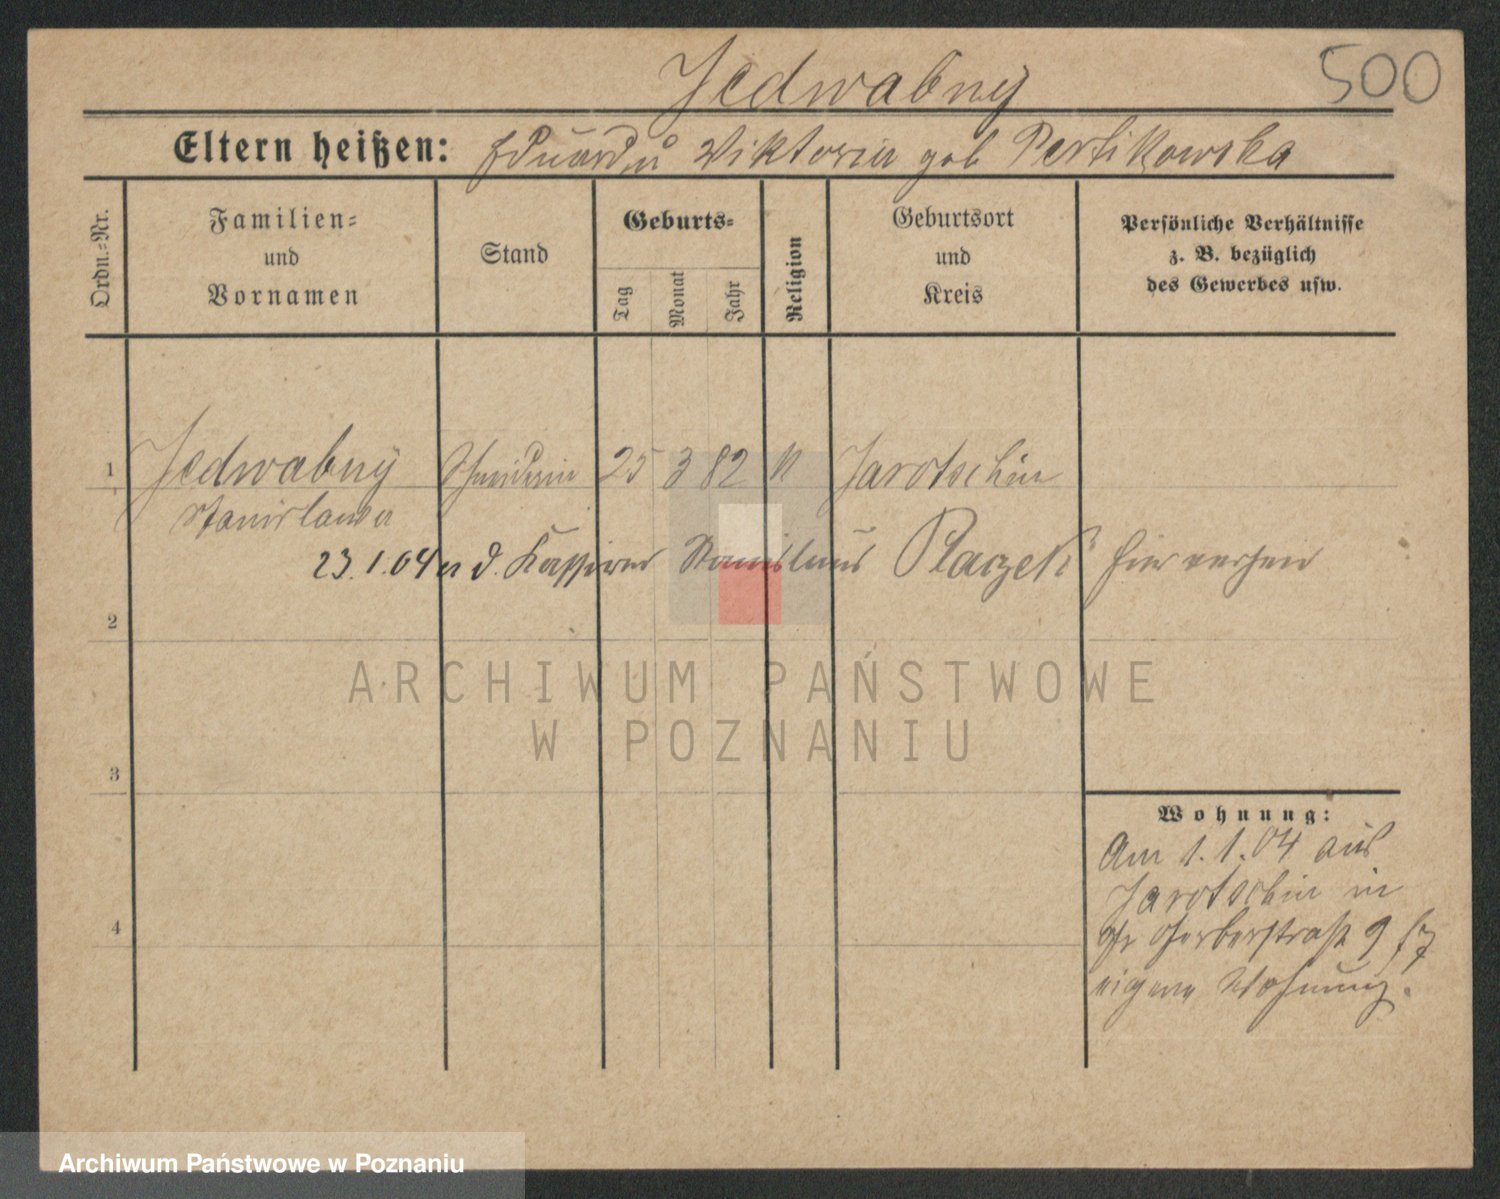 Jedwabny
500
Eltern heißen: Eduard u Viktoria geb Pertikowska
Ordn.-Nr.
Familien-
und
Vornamen
Stand
Geburts-
Tag
Monat
Jahr
Religion
Geburtsort
und
Kreis
Persönliche Verhältnisse
z. B. bezüglich
des Gewerbes usw.
1 Jedwabny Schneiderin 25 3 82 K Jarotschin
Stanislawa
23.1.04 a d. Kassirer Stanislaus Placzek hier
2
ARCHIWUM PAŃSTWOWE
W POZNANIU
3
Wohnung:
Am 1.1.04 aus
Jarotschin in
Gerberstraße 9
eigene Wohnung.
4
Archiwum Państwowe w Poznaniu